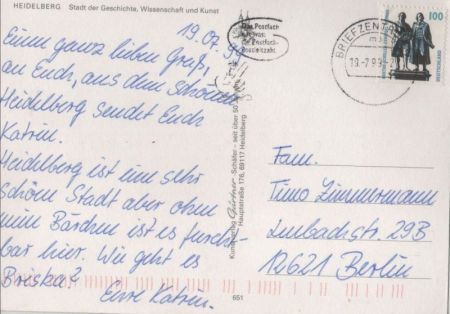 HEIDELBERG Stadt der Geschichte, Wissenschaft und Kunst
19.07.99
Einen ganz lieben Gruß,
an Euch, aus dem schönen
Heidelberg sendet Euch
Katrin.
Heidelberg ist eine sehr
schöne Stadt aber ohne
mein Bärchen ist es furcht-
bar hier. Wie geht es
Eure Katrin.
Das Postfach
BRIEFZENTR
19.-7.99
100
DEUTSCHLAND
Kunstverlag Gärtner-Schäfer - seit über 50
Hauptstraße 176, 69117 Heidelberg
651
Fam.
Timo Zimmermann
29B
12621 Berlin